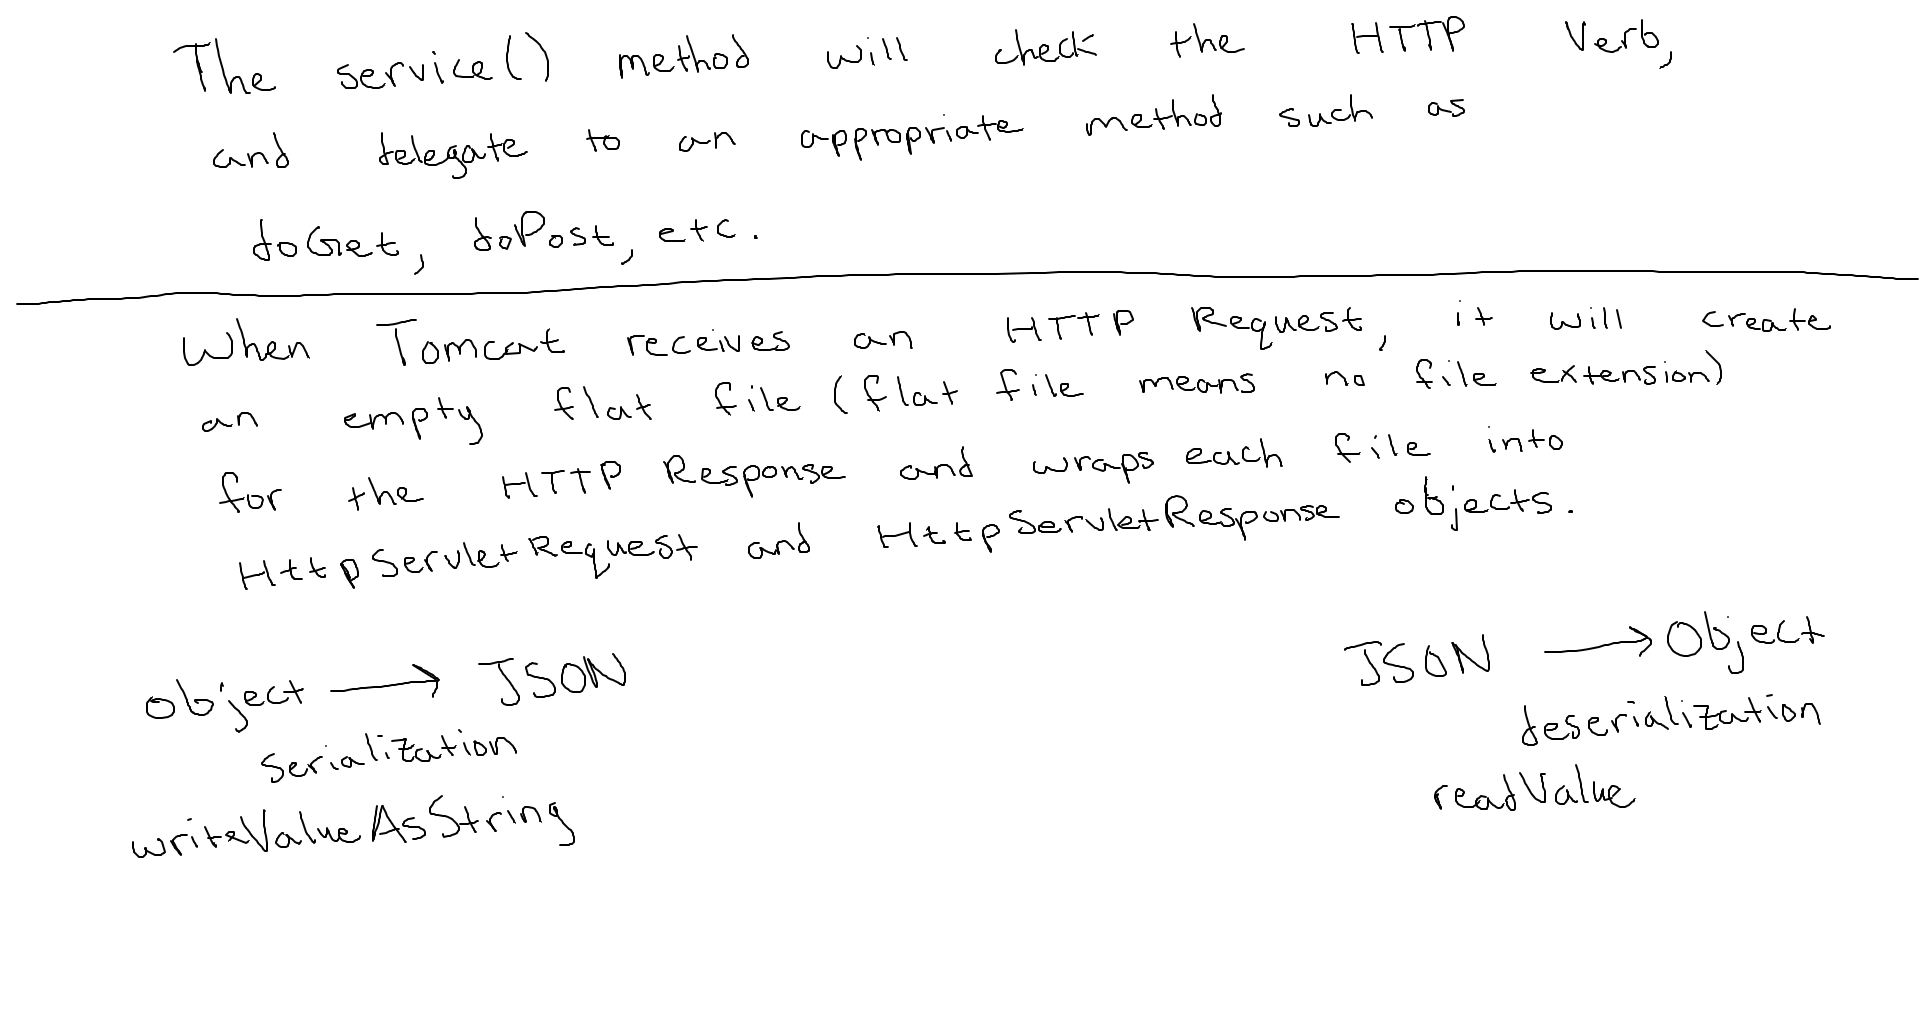 The service() method will check the HTTP Verb,
and delegate to an appropriate method such as
doGet, doPost, etc.
When Tomcat receives an HTTP Request, it will create
an empty flat file (flat file means no file extension)
for the HTTP Response and wraps each file into
HttpServletRequest and HttpServletResponse objects.
object → JSON
serialization
writeValueAsString
JSON → Object
deserialization
readValue